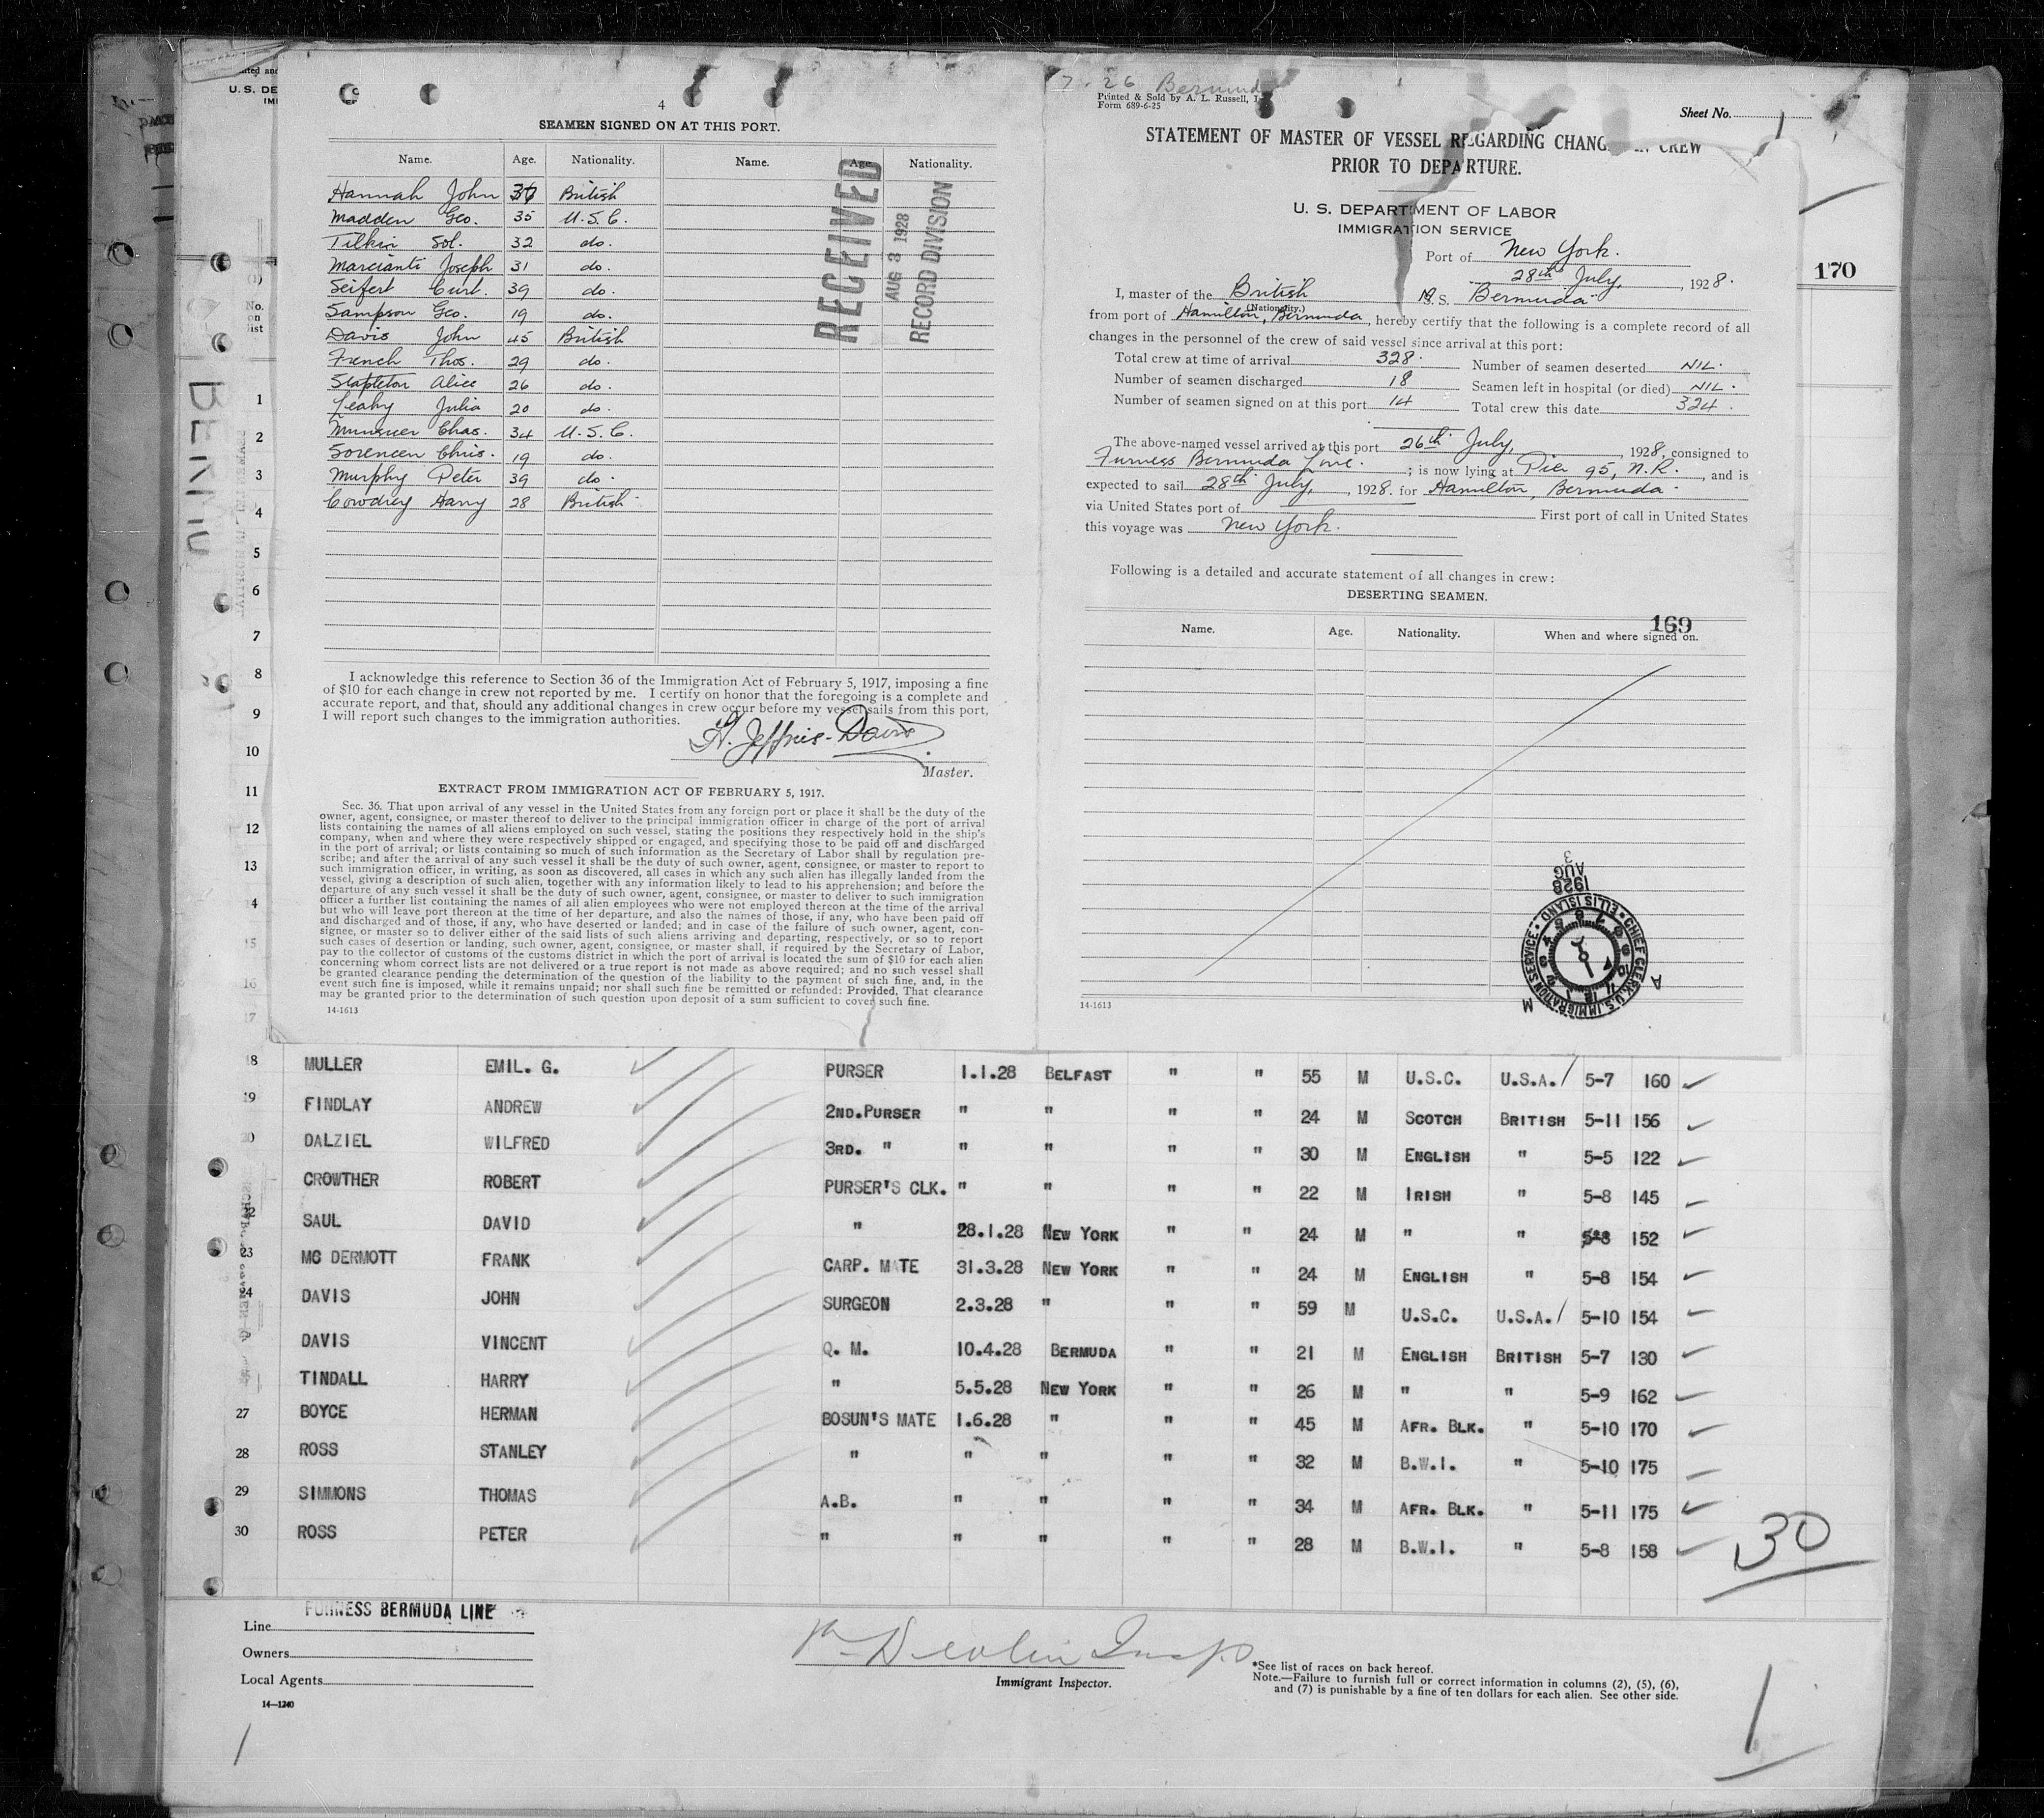 4
SEAMEN SIGNED ON AT THIS PORT.
Name. Age. Nationality. Name. Age. Nationality.
Hannah John British
Madden Geo. 35 U.S.C.
Tilkin Sol. 32 do.
Marcianti Joseph 31 do.
Seifert Curt. 39 do.
Sampson Geo. 19 do.
Davis John 45 British
French Thos. 29 do.
Stapleton Alice 26 do.
Leahy Julia 20 do.
Chas. 34 U.S.C.
Sorencen Chris. 19 do.
Murphy Peter 39 do.
Cowdrey Harry 28 British
RECEIVED
AUG 3 1928
RECORD DIVISION
I acknowledge this reference to Section 36 of the Immigration Act of February 5, 1917, imposing a fine
of $10 for each change in crew not reported by me. I certify on honor that the foregoing is a complete and
accurate report, and that, should any additional changes in crew occur before my vessel sails from this port,
I will report such changes to the immigration authorities.
H. Jeffries-Davis
Master.
EXTRACT FROM IMMIGRATION ACT OF FEBRUARY 5, 1917.
Sec. 36. That upon arrival of any vessel in the United States from any foreign port or place it shall be the duty of the
owner, agent, consignee, or master thereof to deliver to the principal immigration officer in charge of the port of arrival
lists containing the names of all aliens employed on such vessel, stating the positions they respectively hold in the ship's
company, when and where they were respectively shipped or engaged, and specifying those to be paid off and discharged
in the port of arrival; or lists containing so much of such information as the Secretary of Labor shall by regulation pre-
scribe; and after the arrival of any such vessel it shall be the duty of such owner, agent, consignee, or master to report to
such immigration officer, in writing, as soon as discovered, all cases in which any such alien has illegally landed from the
vessel, giving a description of such alien, together with any information likely to lead to his apprehension; and before the
departure of any such vessel it shall be the duty of such owner, agent, consignee, or master to deliver to such immigration
officer a further list containing the names of all alien employees who were not employed thereon at the time of the arrival
but who will leave port thereon at the time of her departure, and also the names of those, if any, who have been paid off
and discharged and of those, if any, who have deserted or landed; and in case of the failure of such owner, agent, con-
signee, or master so to deliver either of the said lists of such aliens arriving and departing, respectively, or so to report
such cases of desertion or landing, such owner, agent, consignee, or master shall, if required by the Secretary of Labor,
pay to the collector of customs of the customs district in which the port of arrival is located the sum of $10 for each alien
concerning whom correct lists are not delivered or a true report is not made as above required; and no such vessel shall
be granted clearance pending the determination of the question of the liability to the payment of such fine, and, in the
event such fine is imposed, while it remains unpaid; nor shall such fine be remitted or refunded: Provided, That clearance
may be granted prior to the determination of such question upon deposit of a sum sufficient to cover such fine.
14-1613
7.26 Bermud
Printed & Sold by A. L. Russell,
Form 689-6-25
Sheet No.
STATEMENT OF MASTER OF VESSEL REGARDING CHANG IN CREW
PRIOR TO DEPARTURE.
U. S. DEPARTMENT OF LABOR
IMMIGRATION SERVICE
Port of New York.
28th July, 1928.
170
I, master of the British S.S. Bermuda
(Nationality.)
from port of Hamilton, Bermuda, hereby certify that the following is a complete record of all
changes in the personnel of the crew of said vessel since arrival at this port:
Total crew at time of arrival 328. Number of seamen deserted NIL.
Number of seamen discharged 18 Seamen left in hospital (or died) NIL.
Number of seamen signed on at this port 14 Total crew this date 324.
The above-named vessel arrived at this port 26th July, 1928, consigned to
Furness Bermuda Line. ; is now lying at Pier 95, N.R., and is
expected to sail 28th July, 1928. for Hamilton, Bermuda.
via United States port of First port of call in United States
this voyage was New York.
Following is a detailed and accurate statement of all changes in crew:
DESERTING SEAMEN.
169
Name. Age. Nationality. When and where signed on.
AUG 3
1928
CHIEF CLERK U.S. IMMIGRATION SERVICE ELLIS ISLAND
A M
14-1613
U. S. DE
No.
on
list
1
2
3
4
5
6
7
8
9
10
11
12
13
4
15
16
17
18 MULLER EMIL. G. PURSER 1.1.28 BELFAST " " 55 M U.S.C. U.S.A. 5-7 160
19 FINDLAY ANDREW 2ND.PURSER " " " " 24 M SCOTCH BRITISH 5-11 156
20 DALZIEL WILFRED 3RD. " " " " " 30 M ENGLISH " 5-5 122
CROWTHER ROBERT PURSER'S CLK. " " " " 22 M IRISH " 5-8 145
22 SAUL DAVID " 28.1.28 NEW YORK " " 24 M " " 5-8 152
23 MC DERMOTT FRANK CARP. MATE 31.3.28 NEW YORK " " 24 M ENGLISH " 5-8 154
24 DAVIS JOHN SURGEON 2.3.28 " " " 59 M U.S.C. U.S.A. 5-10 154
DAVIS VINCENT Q. M. 10.4.28 BERMUDA " " 21 M ENGLISH BRITISH 5-7 130
TINDALL HARRY " 5.5.28 NEW YORK " " 26 M " " 5-9 162
27 BOYCE HERMAN BOSUN'S MATE 1.6.28 " " " 45 M AFR. BLK. " 5-10 170
28 ROSS STANLEY " " " " " 32 M B.W.I. " 5-10 175
29 SIMMONS THOMAS A.B. " " " " 34 M AFR. BLK. " 5-11 175
30 ROSS PETER " " " " " 28 M B.W.I. " 5-8 158
30
Line FURNESS BERMUDA LINE
Owners
Local Agents
14-1240
Devlin Insp
Immigrant Inspector.
*See list of races on back hereof.
Note.—Failure to furnish full or correct information in columns (2), (5), (6),
and (7) is punishable by a fine of ten dollars for each alien. See other side.
1
1